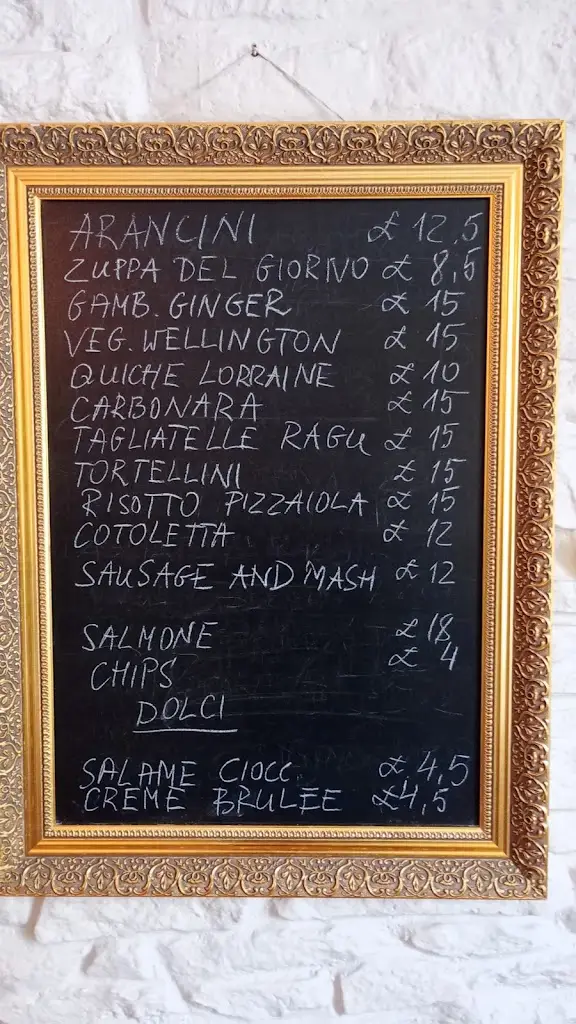 ARANCINI £ 12,5
ZUPPA DEL GIORNO £ 8,5
GAMB. GINGER £ 15
VEG. WELLINGTON £ 15
QUICHE LORRAINE £ 10
CARBONARA £ 15
TAGLIATELLE RAGU £ 15
TORTELLINI £ 15
RISOTTO PIZZAIOLA £ 15
COTOLETTA £ 12
SAUSAGE AND MASH £ 12
SALMONE £ 18
CHIPS £ 4
DOLCI
SALAME CIOCC. £ 4,5
CREME BRULEE £4,5